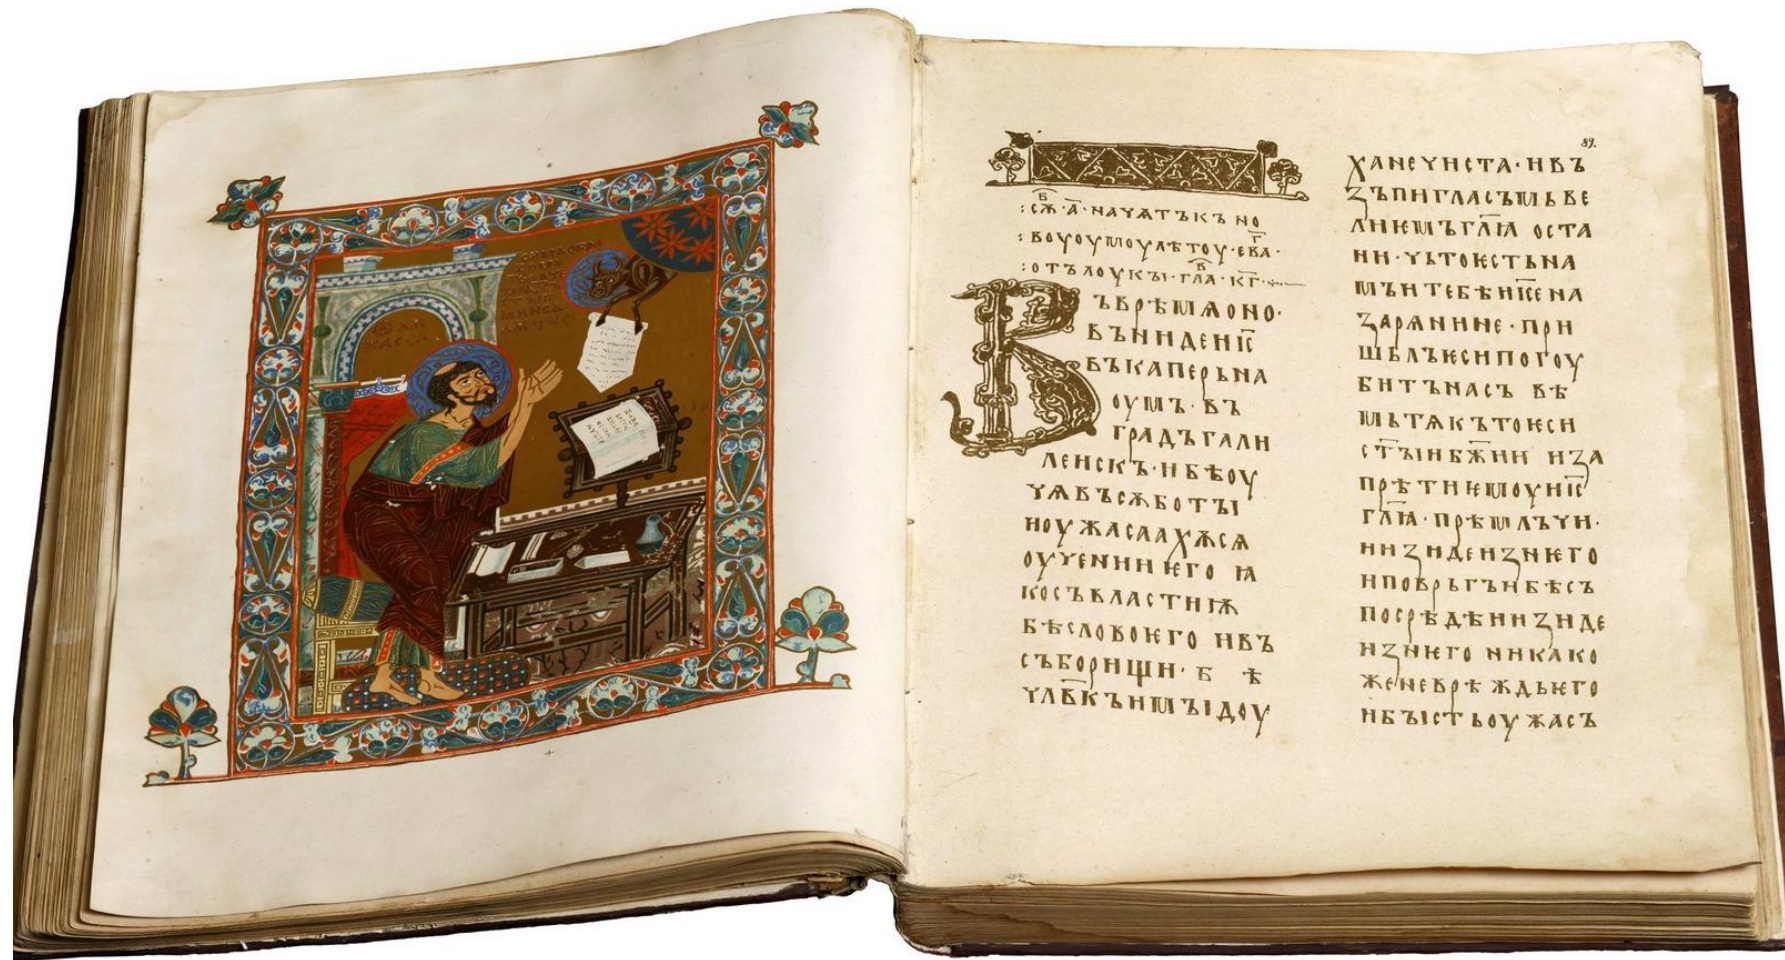 89.
: сѫ҃в · а҃ · начѧтъкъ но
: воуоумоулѣтоу · ева҃г ·
: отълоукꙑ · гла҃в · кг҃ ·
Въврѣмѧоно ·
въниденіс҃
въкаперьна
оумъ · въ
градъгали
леискъ · ибѣоу
чѧвъсѫботꙑ
иоужасаахѫсѧ
оучениикго ꙗ
косъвластиѭ
бѣсловоѥго ивъ
съборищи · б ѣ
члв҃къимꙑдоу
ханечиста · ивъ
зъпигласъмьве
лиѥмъгл҃ꙗ оста
ни · чьтоѥстьна
мъитебѣиіс҃ена
зарѧнине · при
шьлъѥсипогоу
битънасъ вѣ
мьтѧкътоѥси
ст҃ꙑибж҃ии иза
прѣтиѥмоуиіс҃
гл҃ꙗ · прѣмлъчи ·
иизидеизнѥго
иповрьгъибѣсъ
посрѣдѣиизиде
изнѥго никако
женеврѣждьѥго
ибꙑстьоужасъ